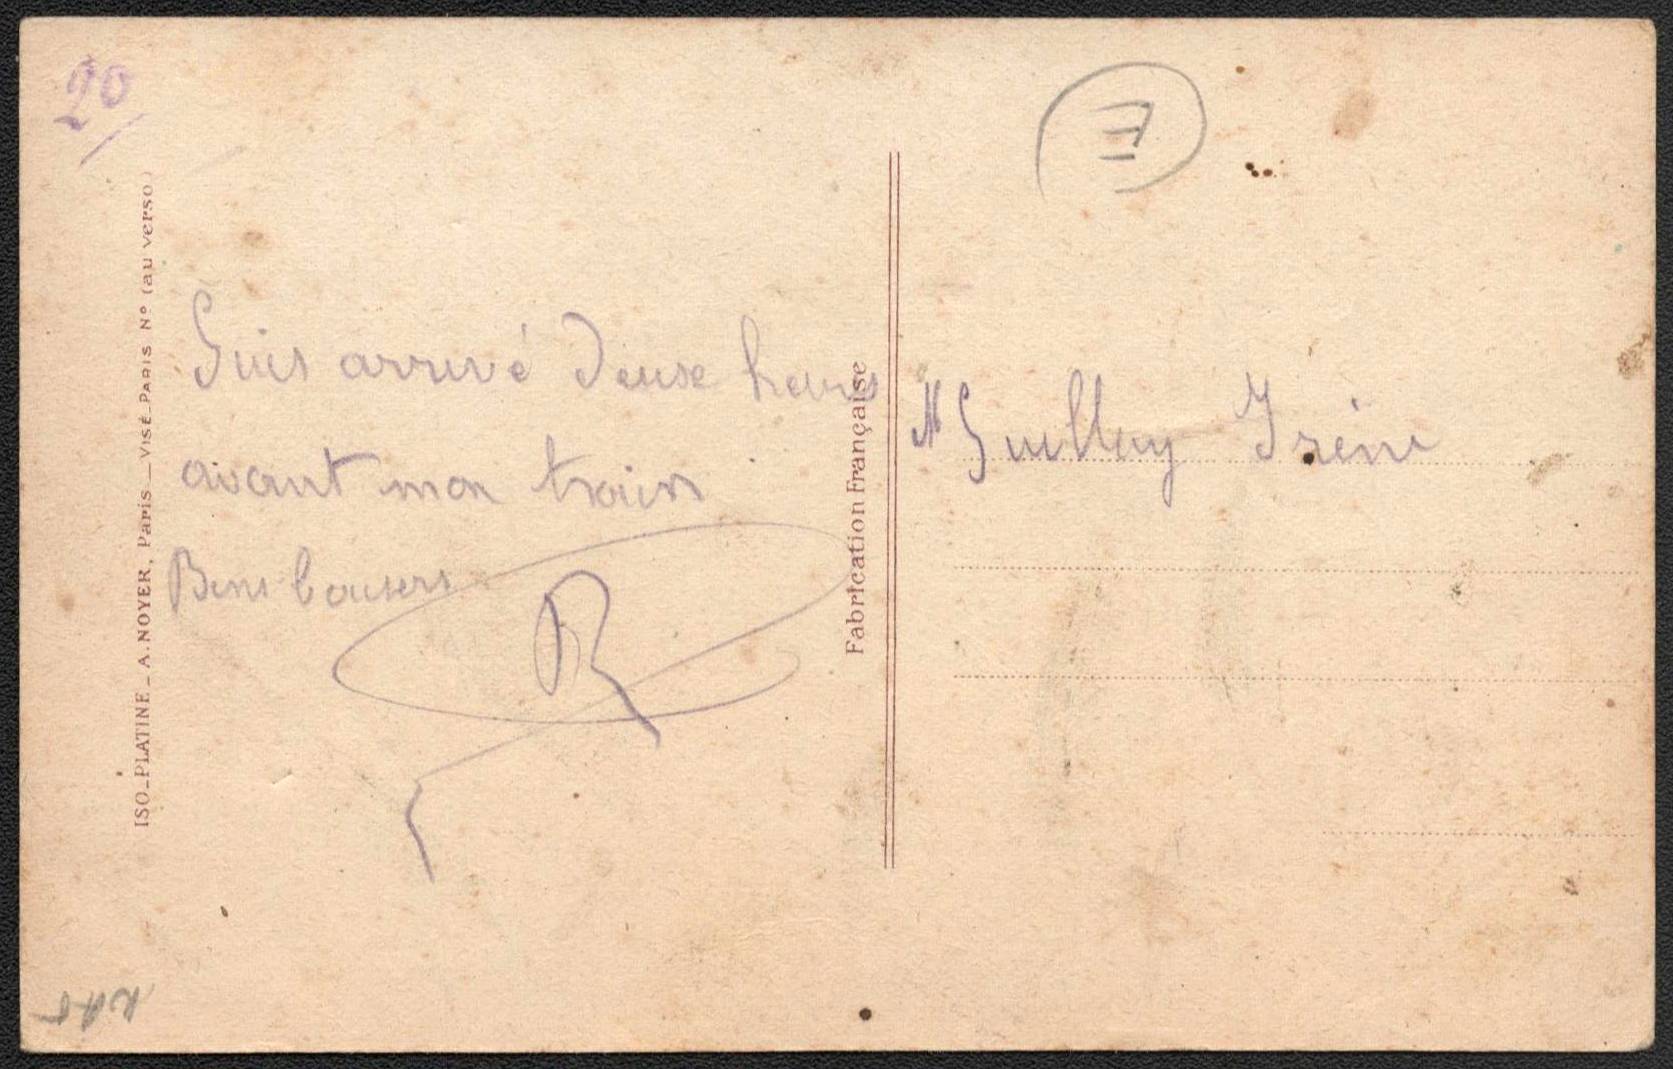 20
ISO_PLATINE _ A. NOYER, Paris _ VISÉ_PARIS Nº (au verso)
Suis arrivé deuse heures
avant mon train
Bons baisers
R
Fabrication Française
Irène